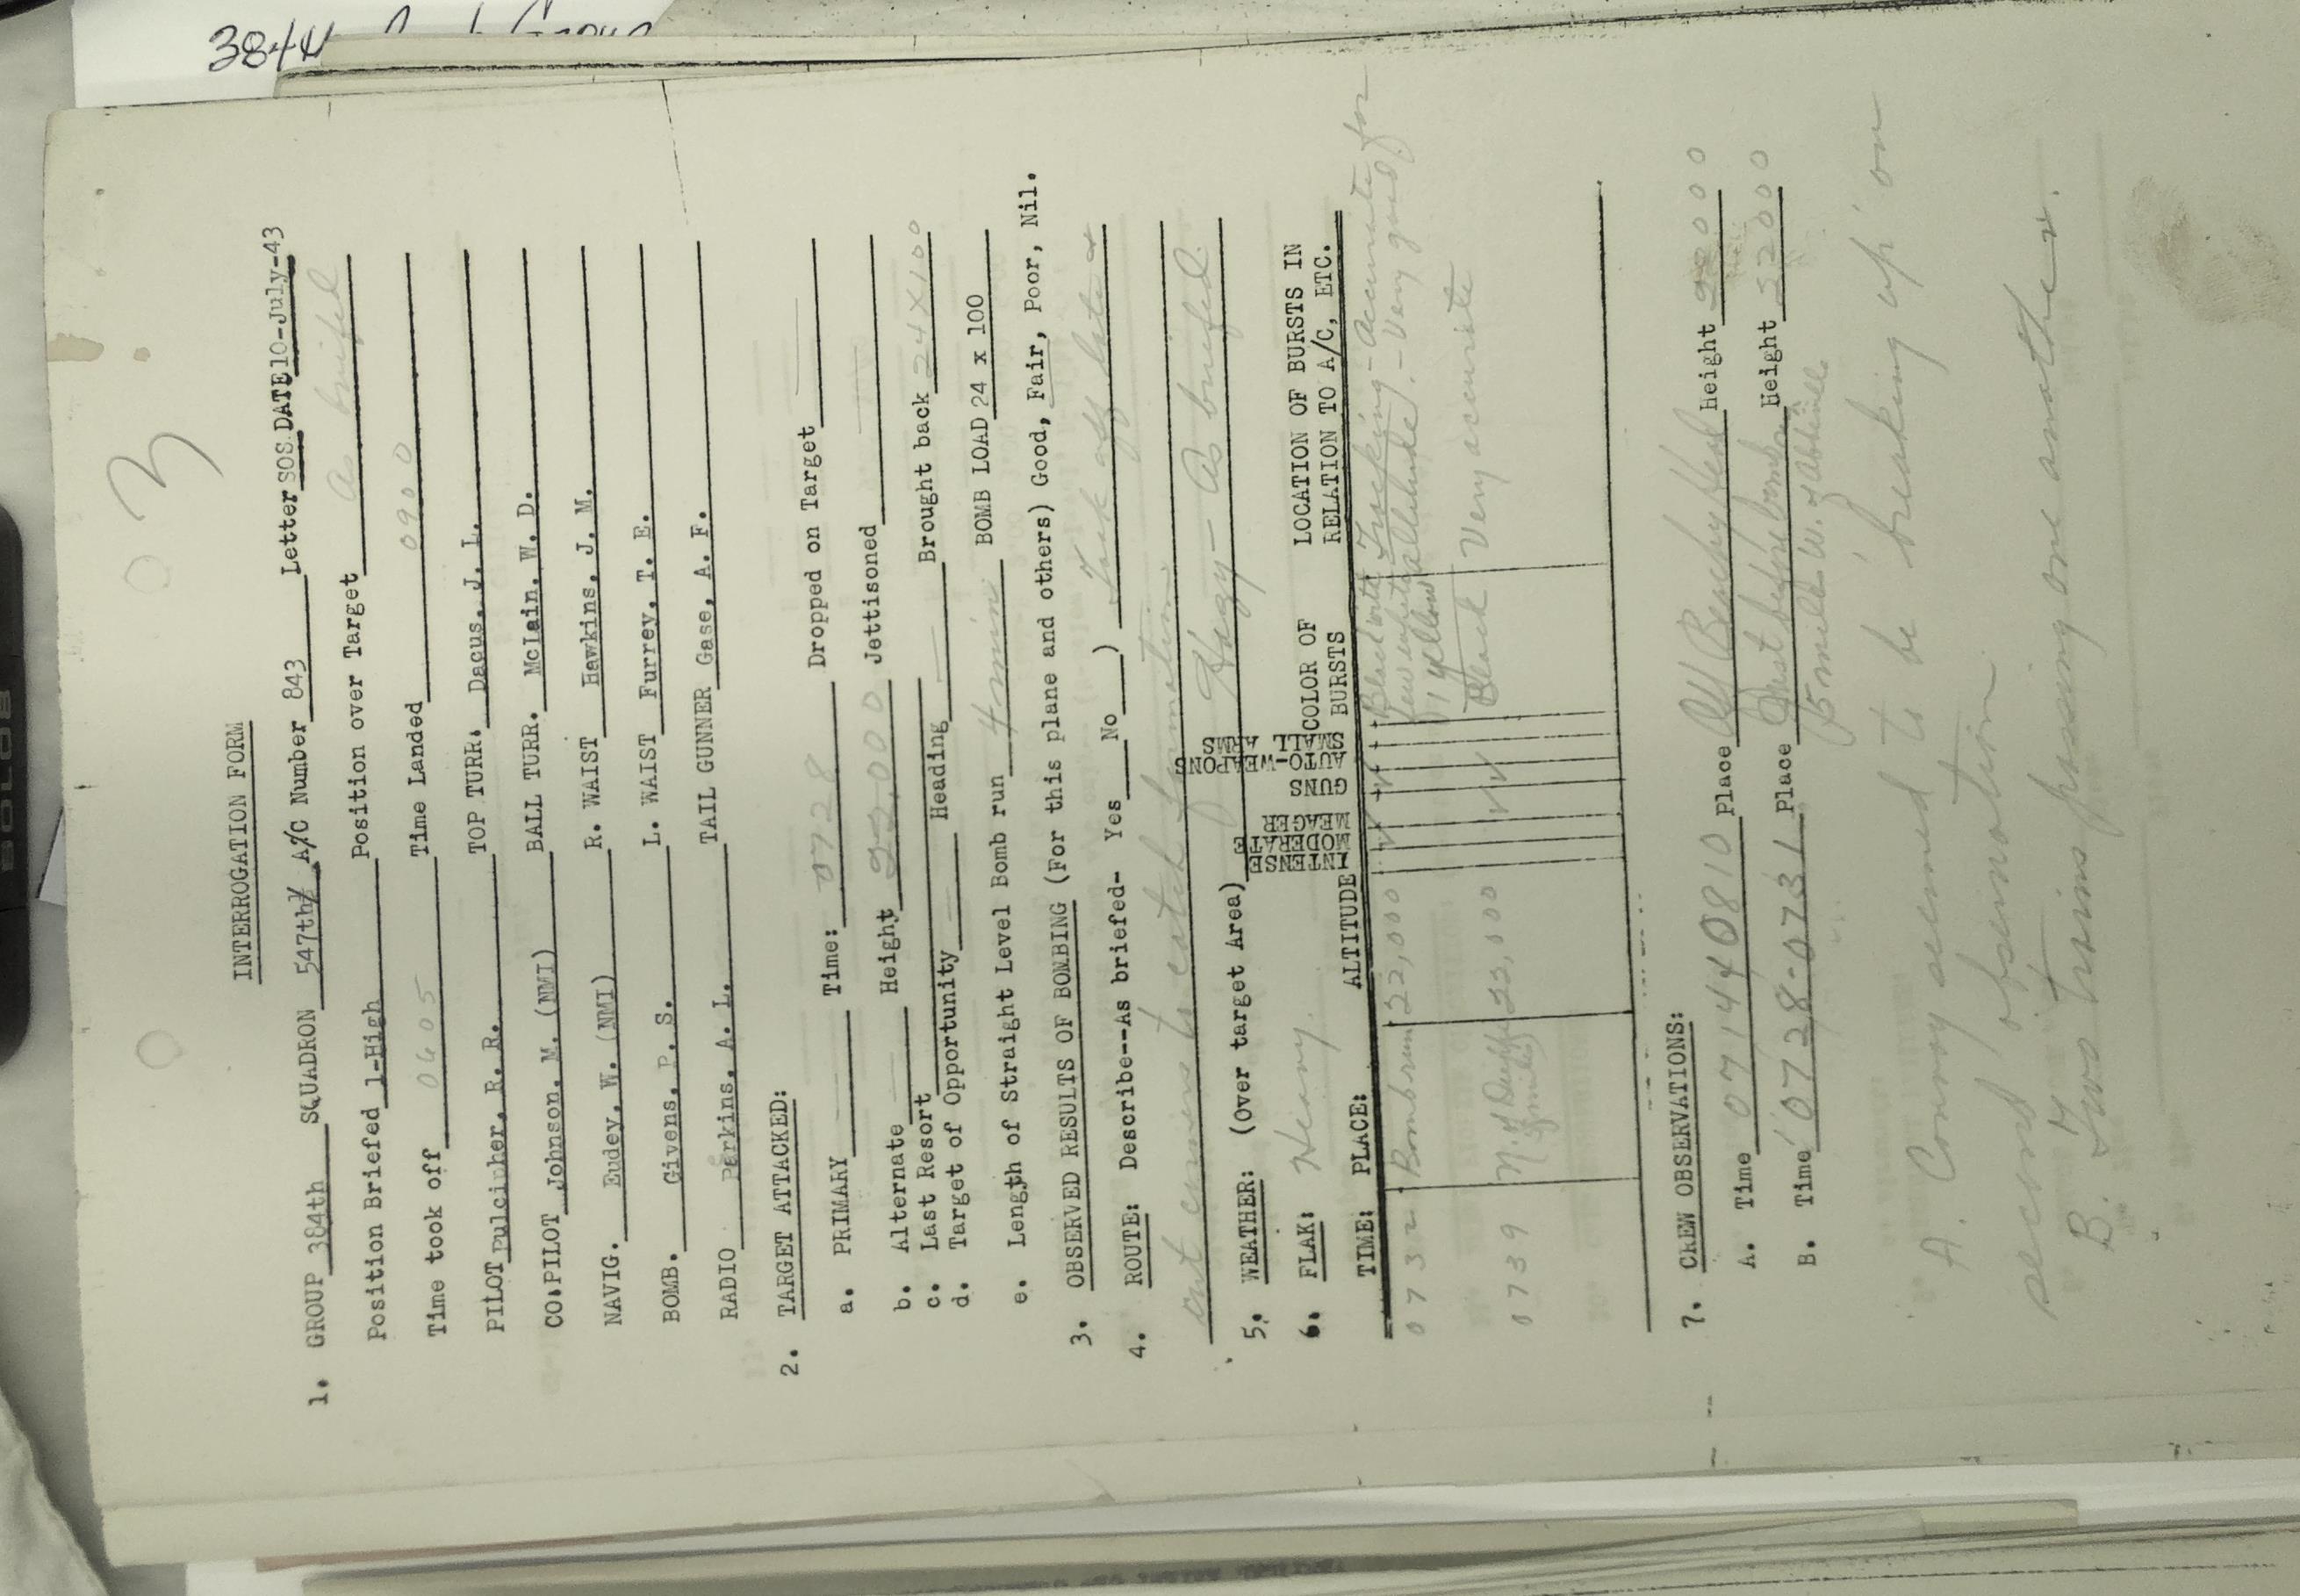 384th
3
INTERROGATION FORM
1. GROUP 384th SQUADRON 547th A/C Number 843 Letter SOS DATE 10-July-43
Position Briefed 1-High Position over Target As briefed
Time took off 0605 Time Landed 0900
PILOT Pulcipher, R. R. TOP TURR. Dacus, J. L.
CO:PILOT Johnson, M. (NMI) BALL TURR. McLain, W. D.
NAVIG. Eudey, W. (NMI) R. WAIST Hawkins, J. M.
BOMB. Givens, P. S. L. WAIST Furrey, T. E.
RADIO Parkins, A. L. TAIL GUNNER Gase, A. F.
2. TARGET ATTACKED:
a. PRIMARY Time: 0728 Dropped on Target
b. Alternate Height 22,000 Jettisoned
c. Last Resort
d. Target of Opportunity Heading Brought back 24X100
e. Length of Straight Level Bomb run 4 min BOMB LOAD 24 x 100
3. OBSERVED RESULTS OF BOMBING (For this plane and others) Good, Fair, Poor, Nil.
4. ROUTE: Describe--As briefed- Yes No ) Took off late &
cut corners to catch formation.
5. WEATHER: (Over target Area) Hazy - As briefed.
6. FLAK: Heavy.
TIME: PLACE: ALTITUDE INTENSE MODERATE MEAGER GUNS AUTO-WEAPONS SMALL ARMS COLOR OF BURSTS LOCATION OF BURSTS IN RELATION TO A/C, ETC.
0732 Bomb run 22,000 Black with few white 1 yellow Tracking - Accurate for altitude. - Very good.
0739 N. of 22,000 Black Very accurate
7. CREW OBSERVATIONS:
A. Time 0714 0810 Place Off Beachy Head Height 22000
B. Time 0728-0731 Place Just before bomb Height 22000
15 miles W. of Abbeville
A. Convoy seemed to be breaking up on
second observation.
B. Two trains passing one another.